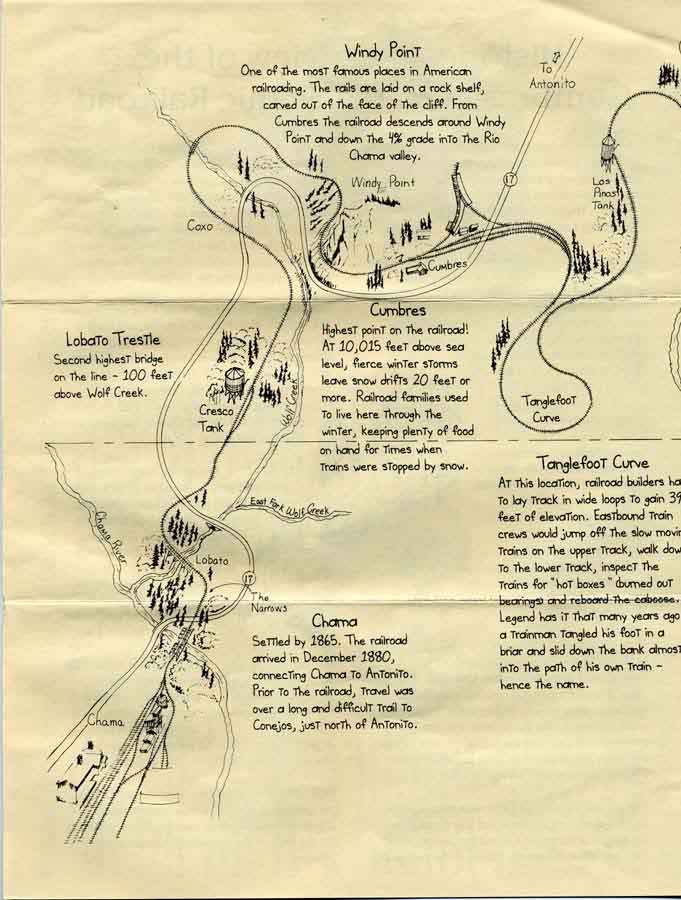 Windy Point
One of the most famous places in American
railroading. The rails are laid on a rock shelf,
carved out of the face of the cliff. From
Cumbres the railroad descends around Windy
Point and down the 4% grade into the Rio
Chama valley.
To
Antonito
17
Los
Pinos
Tank
Windy Point
Coxo
Cumbres
Lobato Trestle
Second highest bridge
on the line - 100 feet
above Wolf Creek.
Cumbres
Highest point on the railroad!
At 10,015 feet above sea
level, fierce winter storms
leave snow drifts 20 feet or
more. Railroad families used
to live here through the
winter, keeping plenty of food
on hand for times when
trains were stopped by snow.
Cresco
Tank
Wolf Creek
Tanglefoot
Curve
Tanglefoot Curve
At this location, railroad builders ha
to lay track in wide loops to gain 39
feet of elevation. Eastbound train
crews would jump off the slow movin
trains on the upper track, walk dow
to the lower track, inspect the
trains for "hot boxes" (burned out
bearings) and reboard the caboose.
Legend has it that many years ago
a trainman tangled his foot in a
briar and slid down the bank almost
into the path of his own train -
hence the name.
East Fork Wolf Creek
Chama River
Lobato
17
The
Narrows
Chama
Settled by 1865. The railroad
arrived in December 1880,
connecting Chama to Antonito.
Prior to the railroad, travel was
over a long and difficult trail to
Conejos, just north of Antonito.
Chama